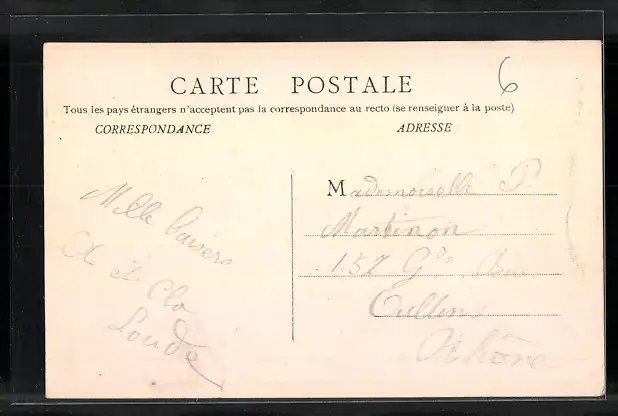 CARTE POSTALE
6
Tous les pays étrangers n'acceptent pas la correspondance au recto (se renseigner à la poste)
CORRESPONDANCE
ADRESSE
Mademoiselle P.
Martinon
157 Gde Rue
Oullins
Rhône
Mille baisers
et Clo